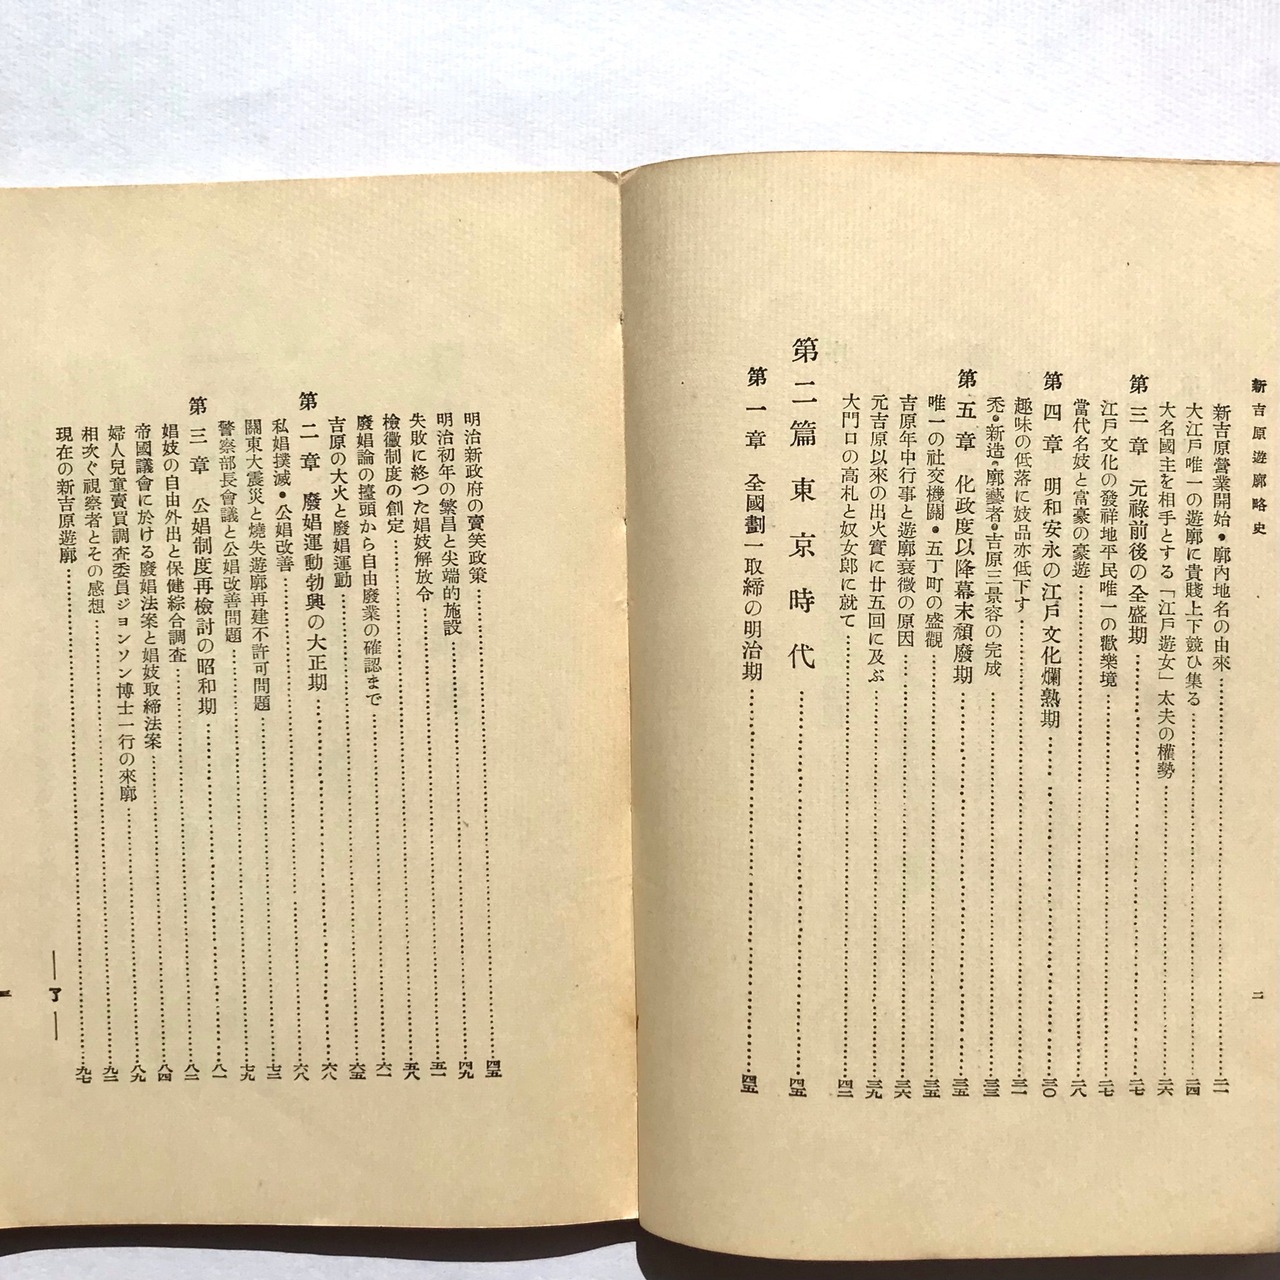 新吉原遊廓略史
二
新吉原營業開始・廓內地名の由來……二一
大江戶唯一の遊廓に貴賤上下競ひ集る……二四
大名國主を相手とする「江戶遊女」太夫の權勢……二六
第三章 元祿前後の全盛期……二七
江戶文化の發祥地平民唯一の歡樂境……二七
當代名妓と富豪の豪遊……二八
第四章 明和安永の江戶文化爛熟期……三〇
趣味の低落に妓品亦低下す……三一
禿・新造・廓藝者・吉原三景容の完成……三三
第五章 化政度以降幕末頽廢期……三五
唯一の社交機關・五丁町の盛觀……三五
吉原年中行事と遊廓衰微の原因……三六
元吉原以來の出火實に廿五回に及ぶ……三九
大門口の高札と奴女郎に就て……四二
第二篇 東京時代……四五
第一章 全國劃一取締の明治期……四五
明治新政府の賣笑政策……四五
明治初年の繁昌と尖端的施設……四九
失敗に終つた娼妓解放令……五一
檢黴制度の創定……五八
廢娼論の擡頭から自由廢業の確認まで……六一
吉原の大火と廢娼運動……六五
第二章 廢娼運動勃興の大正期……六八
私娼撲滅・公娼改善……六八
關東大震災と燒失遊廓再建不許可問題……七三
警察部長會議と公娼改善問題……七九
第三章 公娼制度再檢討の昭和期……八一
娼妓の自由外出と保健綜合調査……八二
帝國議會に於ける廢娼法案と娼妓取締法案……八四
婦人兒童賣買調查委員ジョンソン博士一行の來廓……八九
相次ぐ視察者とその感想……九二
現在の新吉原遊廓……九七
―了―